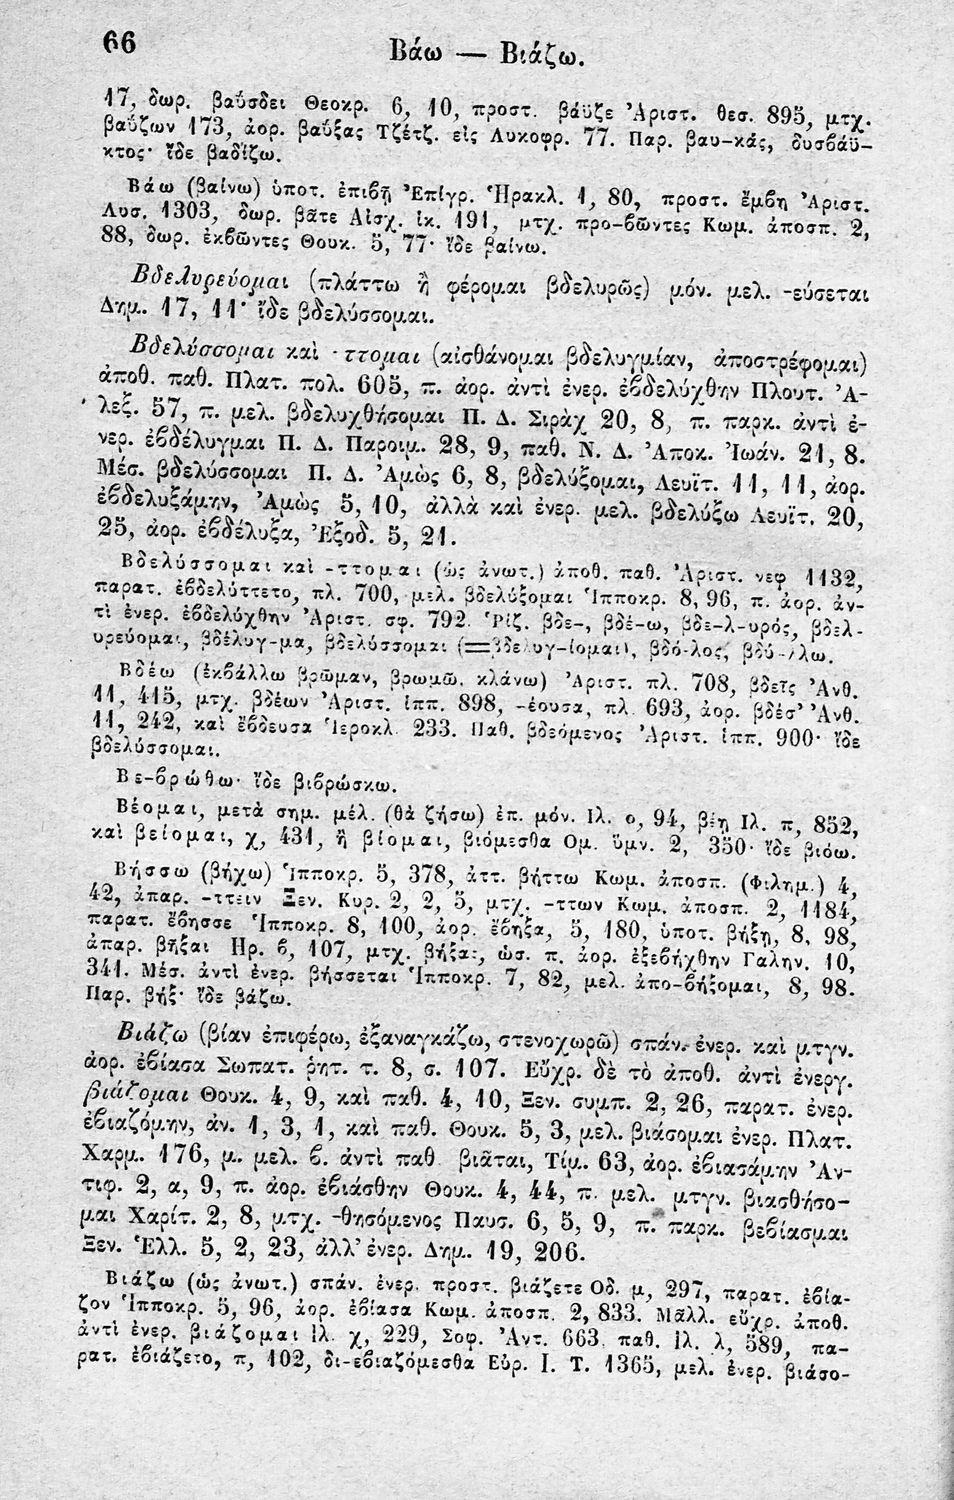 66
Βάω — Βιάζω.
17, δωρ. βαΰσδει Θεοκρ. 6, 10, προστ. βάϋζε Ἀριστ. θεσ. 895, μτχ.
βαΰζων 173, ἀορ. βαΰξας Τζέτζ. εἰς Λυκοφρ. 77. Παρ. βαυ-κάς, δυσβάϋ-
κτος· ἴδε βαδίζω.
Βάω (βαίνω) ὑποτ. ἐπιβῇ Ἐπίγρ. Ἡρακλ. 1, 80, προστ. ἔμβη Ἀριστ.
Λυσ. 1303, δωρ. βᾶτε Αἰσχ. ἱκ. 191, μτχ. προ-βῶντες Κωμ. ἀποσπ. 2,
88, δωρ. ἐκβῶντες Θουκ. 5, 77· ἴδε βαίνω.
Βδελυρεύομαι (πλάττω ἢ φέρομαι βδελυρῶς) μόν. μελ. -εύσεται
Δημ. 17, 11· ἴδε βδελύσσομαι.
Βδελύσσομαι καὶ -ττομαι (αἰσθάνομαι βδελυγμίαν, ἀποστρέφομαι)
ἀποθ. παθ. Πλατ. πολ. 605, π. ἀορ. ἀντὶ ἐνερ. ἐβδελύχθην Πλουτ. Ἀ-
λεξ. 57, π. μελ. βδελυχθήσομαι Π. Δ. Σιρὰχ 20, 8, π. παρκ. ἀντὶ ἐ-
νερ. ἐβδέλυγμαι Π. Δ. Παροιμ. 28, 9, παθ. Ν. Δ. Ἀποκ. Ἰωάν. 21, 8.
Μέσ. βδελύσσομαι Π. Δ. Ἀμὼς 6, 8, βδελύξομαι, Λευϊτ. 11, 11, ἀορ.
ἐβδελυξάμην, Ἀμὼς 5, 10, ἀλλὰ καὶ ἐνερ. μελ. βδελύξω Λευϊτ. 20,
25, ἀορ. ἐβδέλυξα, Ἐξοδ. 5, 21.
Βδελύσσομαι καὶ -ττομαι (ὡς ἀνωτ.) ἀποθ. παθ. Ἀριστ. νεφ 1132,
παρατ. ἐβδελύττετο, πλ. 700, μελ. βδελύξομαι Ἱπποκρ. 8, 96, π. ἀορ. ἀν-
τὶ ἐνερ. ἐβδελύχθην Ἀριστ. σφ. 792. Ῥίζ. βδε-, βδέ-ω, βδε-λ-υρός, βδελ-
υρεύομαι, βδέλυγ-μα, βδελύσσομαι (=βδελυγ-ίομαι), βδό-λος, βδύ-λλω.
Βδέω (ἐκβάλλω βρῶμαν, βρωμῶ, κλάνω) Ἀριστ. πλ. 708, βδεῖς Ἀνθ.
11, 415, μτχ. βδέων Ἀριστ. ἱππ. 898, -έουσα, πλ 693, ἀορ. βδέσ' Ἀνθ.
11, 242, καὶ ἔβδευσα Ἱεροκλ. 233. Παθ. βδεόμενος Ἀριστ. ἱππ. 900· ἴδε
βδελύσσομαι.
Βε-βρώθω· ἴδε βιβρώσκω.
Βέομαι, μετὰ σημ. μέλ. (θὰ ζήσω) ἐπ. μόν. Ιλ. ο, 94, βέῃ Ιλ. π, 852,
καὶ βείομαι, χ, 431, ἢ βίομαι, βιόμεσθα Ομ. ὕμν. 2, 350· ἴδε βιόω.
Βήσσω (βήχω) Ἱπποκρ. 5, 378, ἀττ. βήττω Κωμ. ἀποσπ. (Φιλημ.) 4,
42, ἀπαρ. -ττειν Ξεν. Κυρ. 2, 2, 5, μτχ. -ττων Κωμ. ἀποσπ. 2, 1184,
παρατ. ἔβησσε Ἱπποκρ. 8, 100, ἀορ. ἔβηξα, 5, 180, ὑποτ. βήξῃ, 8, 98,
ἀπαρ. βῆξαι Ηρ. 6, 107, μτχ. βήξας, ὡσ. π. ἀορ. ἐξεβήχθην Γαλην. 10,
341. Μέσ. ἀντὶ ἐνερ. βήσσεται Ἱπποκρ. 7, 82, μελ. ἀπο-βήξομαι, 8, 98.
Παρ. βήξ· ἴδε βάζω.
Βιάζω (βίαν ἐπιφέρω, ἐξαναγκάζω, στενοχωρῶ) σπάν. ἐνερ. καὶ μτγν.
ἀορ. ἐβίασα Σωπατ. ῥητ. τ. 8, σ. 107. Εὔχρ. δὲ τὸ ἀποθ. ἀντὶ ἐνεργ.
βιάζομαι Θουκ. 4, 9, καὶ παθ. 4, 10, Ξεν. συμπ. 2, 26, παρατ. ἐνερ.
ἐβιαζόμην, ἀν. 1, 3, 1, καὶ παθ. Θουκ. 5, 3, μελ. βιάσομαι ἐνερ. Πλατ.
Χαρμ. 176, μ. μελ. β. ἀντὶ παθ βιᾶται, Τίμ. 63, ἀορ. ἐβιασάμην Ἀν-
τιφ. 2, α, 9, π. ἀορ. ἐβιάσθην Θουκ. 4, 44, π. μελ. μτγν. βιασθήσο-
μαι Χαρίτ. 2, 8, μτχ. -θησόμενος Παυσ. 6, 5, 9, π. παρκ. βεβίασμαι
Ξεν. Ἑλλ. 5, 2, 23, ἀλλ' ἐνερ. Δημ. 19, 206.
Βιάζω (ὡς ἀνωτ.) σπάν. ἐνερ. προστ. βιάζετε Οδ. μ, 297, παρατ. ἐβία-
ζον Ἱπποκρ. 5, 96, ἀορ. ἐβίασα Κωμ. ἀποσπ. 2, 833. Μᾶλλ. εὔχρ. ἀποθ.
ἀντὶ ἐνερ. βιάζομαι Ιλ. χ, 229, Σοφ. Ἀντ. 663, παθ. Ιλ. λ, 589, πα-
ρατ. ἐβιάζετο, π, 102, δι-εβιαζόμεσθα Εὐρ. Ι. Τ. 1365, μελ. ἐνερ. βιάσο-